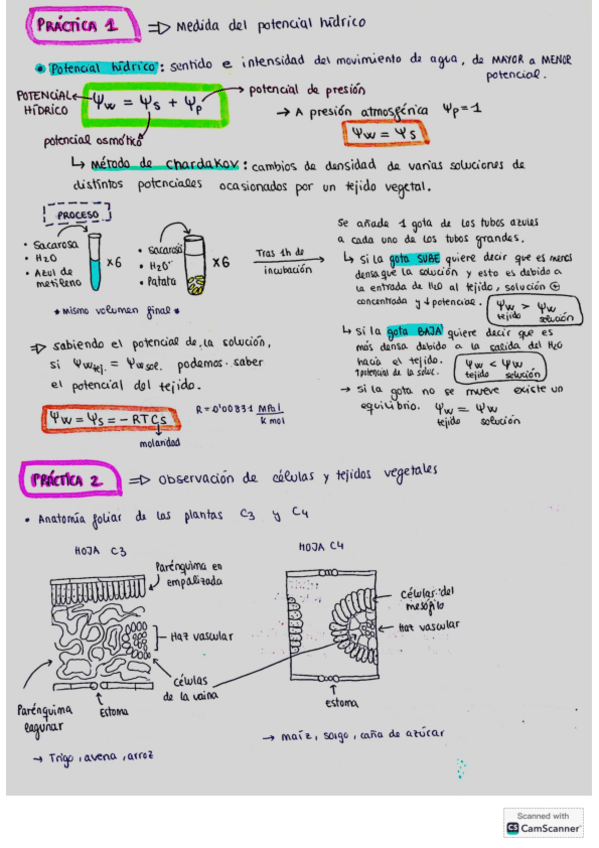 PRÁCTICA 1 ⇒ Medida del potencial hídrico
• Potencial hídrico: sentido e intensidad del movimiento de agua, de MAYOR a MENOR
potencial.
POTENCIAL HÍDRICO
Ψw = Ψs + Ψp
potencial de presión
potencial osmótko
→ A presión atmosgénica Ψp = 1
Ψw = Ψs
↳ Método de Chardakov: cambios de densidad de varias soluciones de
distintos potenciales ocasionados por un tejido vegetal.
PROCESO
• Sacarosa
• H2O
• Azul de
metileno
x6
• Sacarosa
• H2O
• Patata
x6
* Mismo volumen final *
Tras 1h de
incubación
Se añade 1 gota de los tubos azules
a cada uno de los tubos grandes.
↳ Si la gota SUBE quiere decir que es menos
densa que la solución y esto es debido a
la entrada de H2O al tejido, solución ⊕
concentrada y ↓ potencial.
Ψw > Ψw
tejido solución
↳ Si la gota BAJA quiere decir que es
más densa debido a la salida del H2O
hacia el tejido.
↑potencial de la soluc.
Ψw < Ψw
tejido solución
→ Si la gota no se mueve existe un
equilibrio. Ψw = Ψw
tejido solución
⇒ sabiendo el potencial de la solución,
si Ψw tej. = Ψw sol. podemos saber
el potencial del tejido.
Ψw = Ψs = -RTCs
molaridad
R = 0'00831 MPa l
K mol
PRÁCTICA 2 ⇒ Observación de células y tejidos vegetales
• Anatomía foliar de las plantas C3 y C4
HOJA C3
HOJA C4
Parénquima en
empalizada
Haz vascular
Células
de la vaina
Parénquima
lagunar
Estoma
Células del
mesófilo
Haz vascular
estoma
→ Trigo, avena, arroz
→ maíz, sorgo, caña de azúcar
Scanned with
CS CamScanner